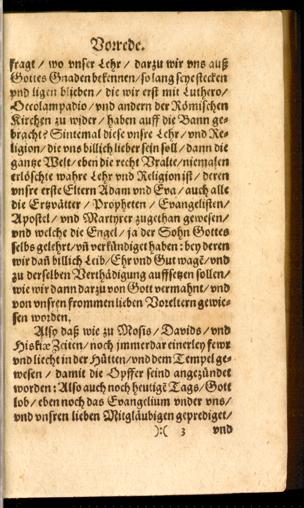 Vorrede.
fragt / wo vnser Lehr / darzu wir vns auß
Gottes Gnaden bekennen / so lang seye stecken
vnd ligen blieben / die wir erst mit Luthero /
Oecolampadio / vnd andern der Römischen
Kirchen zu wider / haben auff die Bann ge-
bracht? Sintemal diese vnsre Lehr / vnd Re-
ligion / die vns billich lieber sein soll / dann die
gantze Welt / eben die recht Vralte / niemalen
erlöschte wahre Lehr vnd Religion ist / deren
vnsre erste Eltern Adam vnd Eva / auch alle
die Ertzvätter / Propheten / Evangelisten /
Apostel / vnd Martyrer zugethan gewesen /
vnd welche die Engel / ja der Sohn Gottes
selbs gelehrt / vñ verkündiget haben: bey deren
wir dañ billich Leib / Ehr vnd Gut wagẽ / vnd
zu derselben Verthädigung auffsetzen sollen /
wie wir dann darzu von Gott vermahnt / vnd
von vnsren frommen lieben Voreltern gewie-
sen worden.
Also daß wie zu Mosis / Davids / vnd
Hiskiæ Zeiten / noch jmmerdar einerley fewr
vnd liecht in der Hütten / vnd dem Tempel ge-
wesen / damit die Opffer seind angezündet
worden: Also auch noch heutigẽ Tags / Gott
lob / eben noch das Evangelium vnder vns /
vnd vnsren lieben Mitgläubigen geprediget /
):( 3 vnd